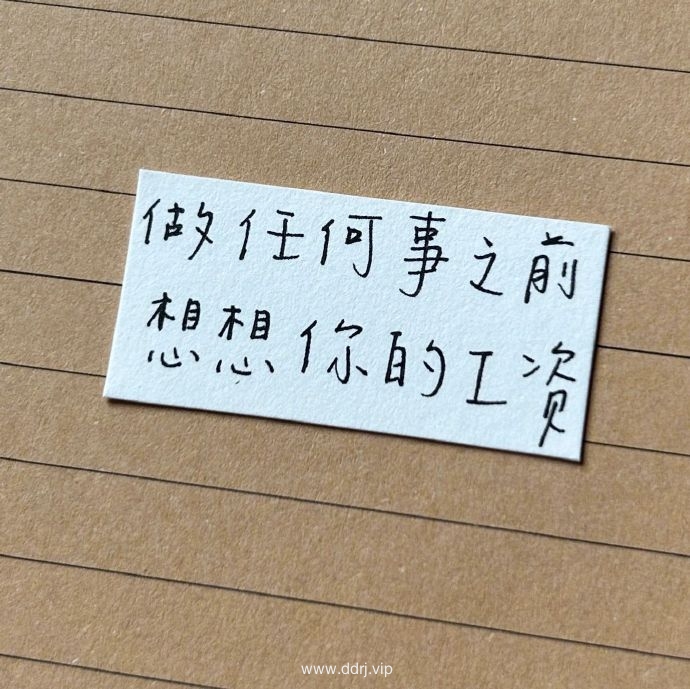 做任何事之前
想想你的工资
www.ddrj.vip